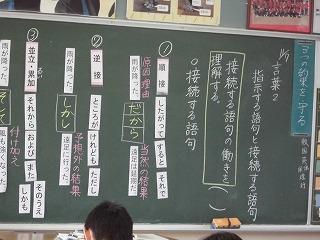 3つの約束を守る
1/5 言葉2
指示する語句と接続する語句
接続する語句の働きを理解する。
○接続する語句
① 順接
したがって
すると
それで
原因・理由
雨が降った。
だから
当然の結果
遠足は延期だ
② 逆接
ところが
けれども
ただし
雨が降った。
しかし
予想外の結果
遠足に行った。
③ 並立・累加
それから
および
また
そのうえ
しかも
雨が降った。
そして
付け加え
風も強くなった